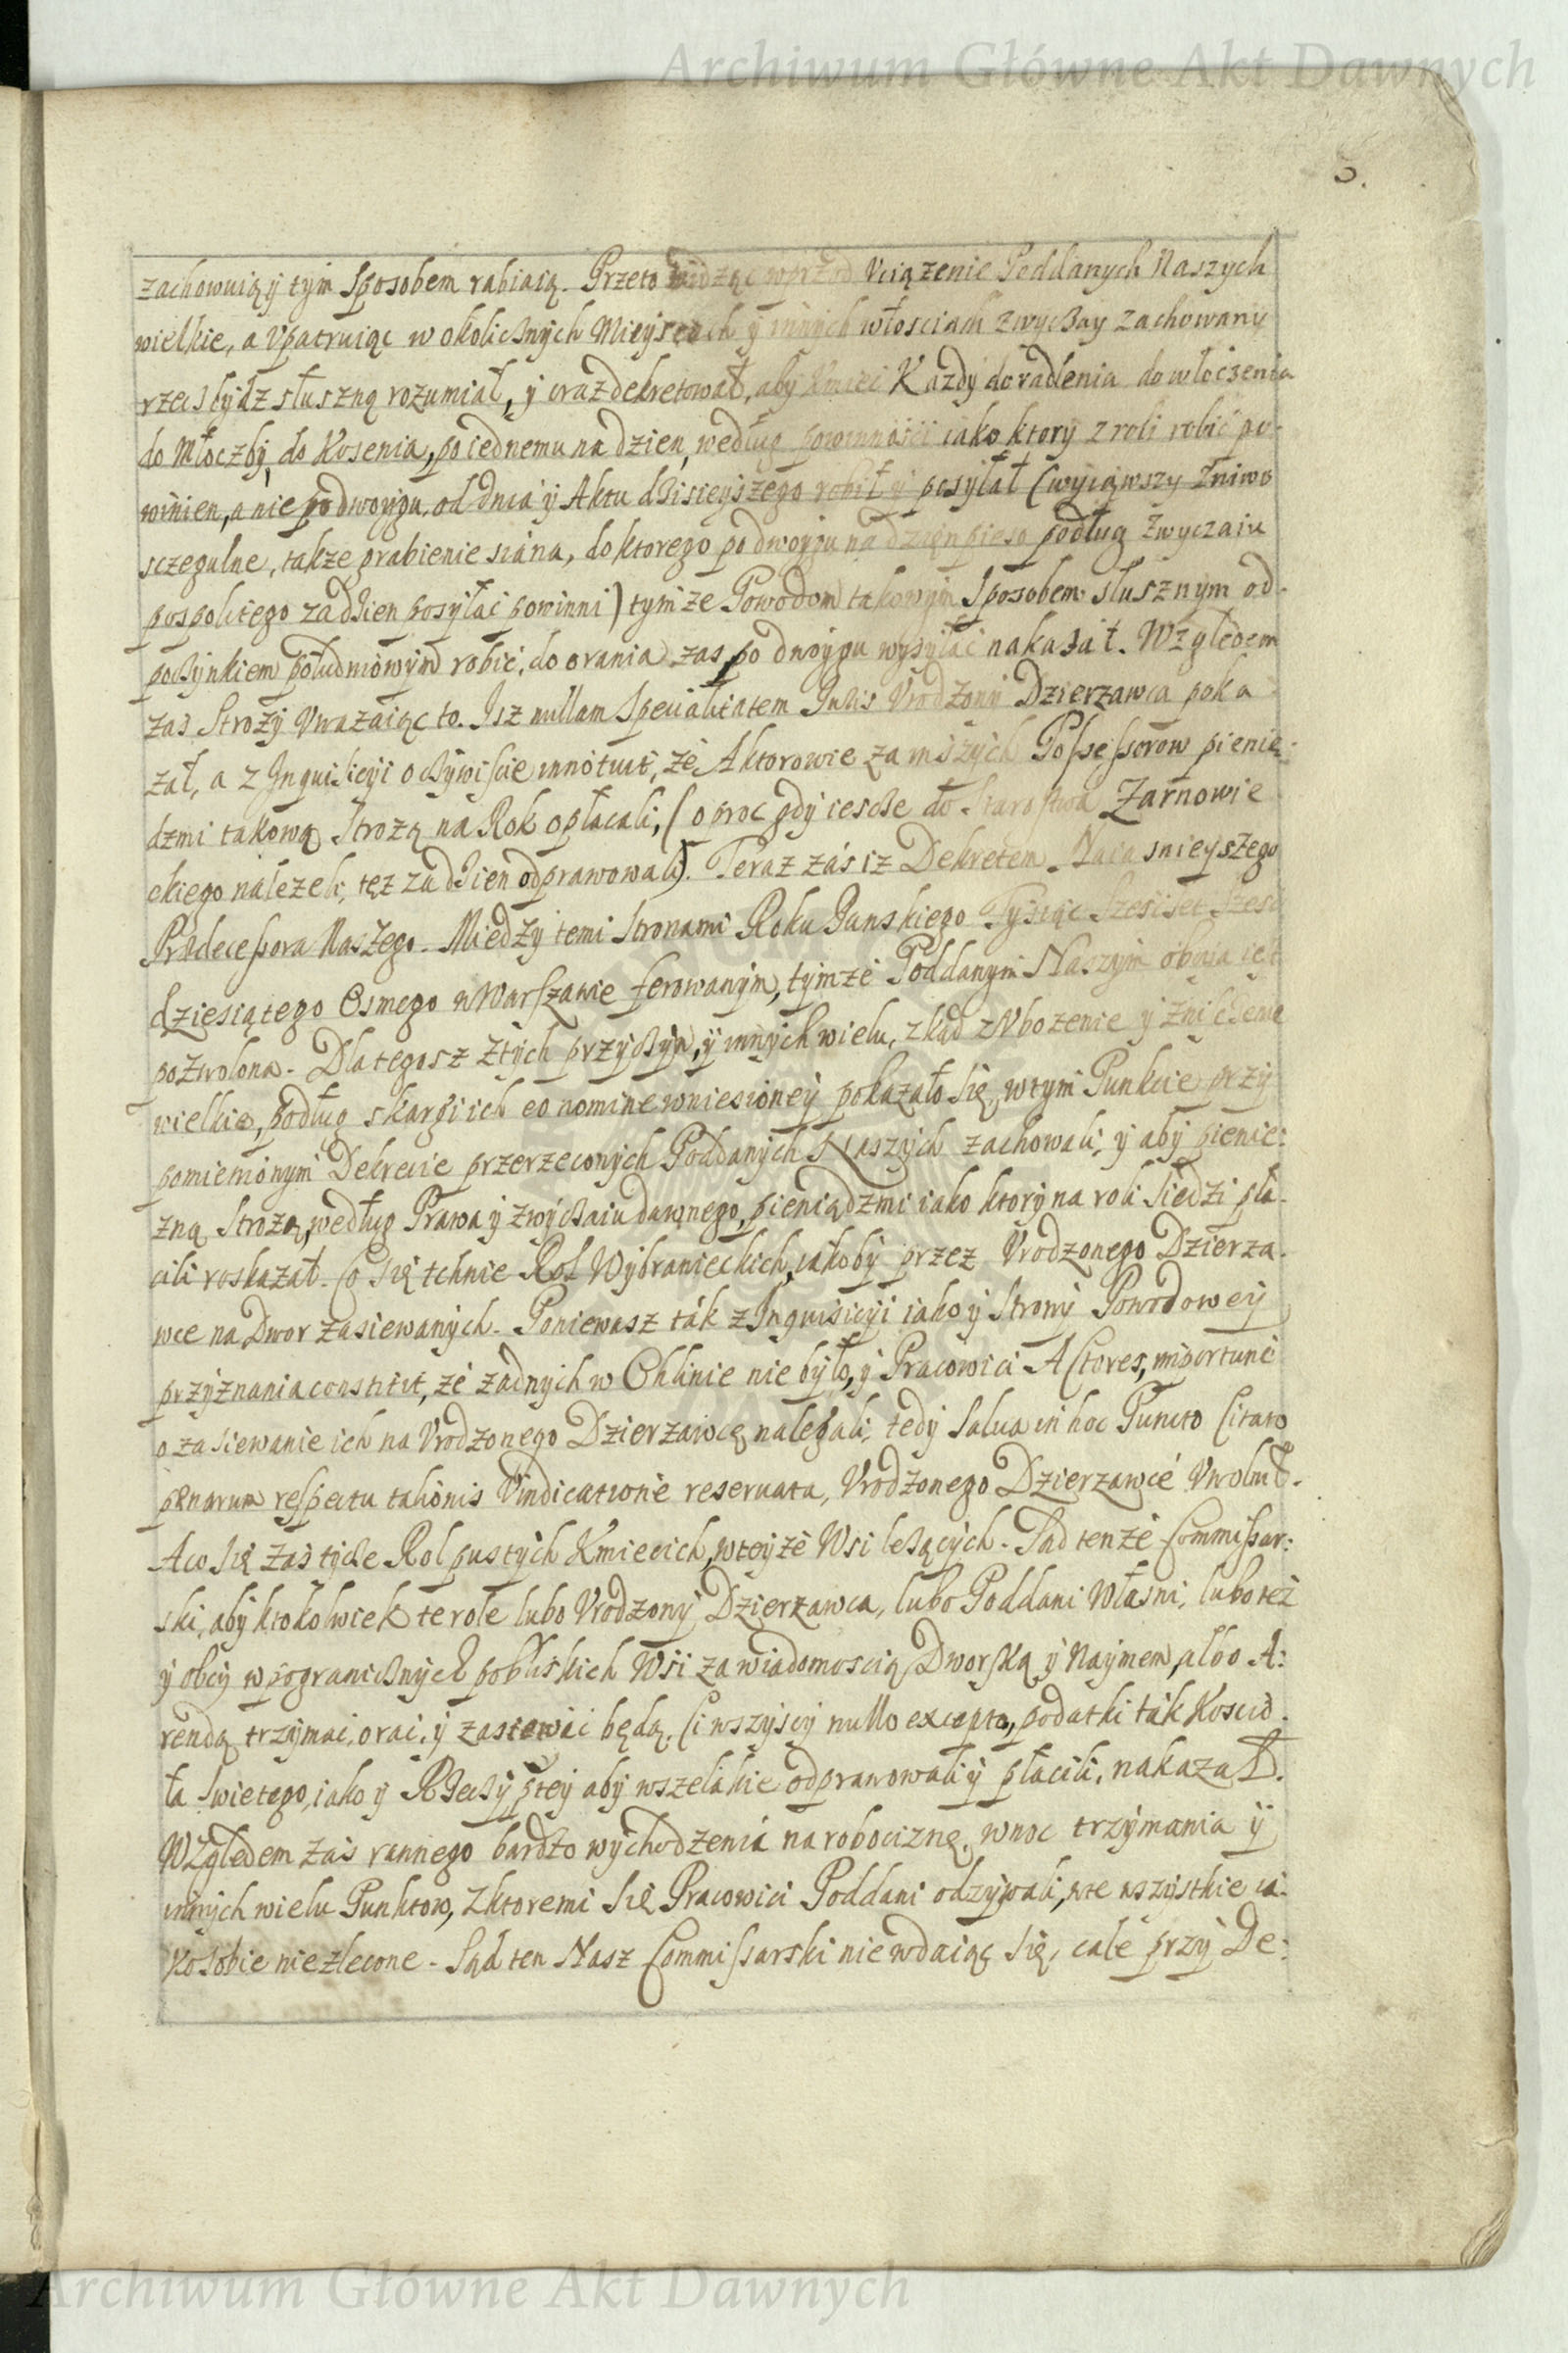 Archiwum Główne Akt Dawnych
3.
zachowuią y tym Sposobem rabiaią. Przeto widząc wprzod Vciązenie Poddanych Naszych
wielkie, a Vpatruiąc w okolicznych Mieyscach y innych włosciach zwyczay zachowany
rzecz bydz słuszną rozumiał, y oraz dekretował, aby Kmieć Kazdy do radlenia do włoczenia
do Młoczby, do Kosenia, po iednemu na dzien, według powinności iako ktory z roli robić po-
winien, a nie po dwoygu, od dnia y Aktu dzisieyszego robił y posyłał (wyiąwszy Zniwo
sczegulne, takze grabienie siána, do ktorego po dwoygu na dzięn pieso podług zwyczaiu
pospolitego za dzien posyłać powinni) tymze Powodom takowym Sposobem słusznym od-
poczynkiem południowym robić, do orania zas po dwoygu wysyłać nakazał. Względem
zas Strozy Vwazaiąc to. Isz nullam Specialitatem Iuris Vrodzony Dzierzawca poka
zał, a z Inquisicyi oczywiscie innotuit, ze Aktorowie za inszych Possessorow pienię-
dzmi takową Strozą na Rok opłacali, (oproc gdy iescze do Starostwa Zarnowie
ckiego nalezeli, tęz za dzien odprawowali). Teraz zás iz Dekretem Naiasnieyszego
Prædecessora Naszego. Między temi Stronami Roku Panskiego Tysiąc Szescset Szesc
dziesiątego Osmego w Warszawie ferowanym, tymze Poddanym Naszym oboia iest
pozwolona. Dla tegosz z tych przyczyn, y innych wielu, zkąd zVbozenie y zniszczenie
wielkie, podług skargi ich eo nomine wniesioney pokazało się, w tym Punkcie przy
pomienionym Dekrecie przerzeconych Poddanych Naszych zachował, y aby pienię:
zną Strozą, według Prawa y zwyczaiu dawnego, pieniądzmi iako ktory na roli siedzi pła-
cili roskazał. Co się tchnie Rol Wybranieckich, iakoby przez Vrodzonego Dzierza-
wce na Dwor zasiewanych. Poniewasz ták z Inquisicyi iako y Strony Powodowey
przyznania constitit, ze zadnych w Chlinie nie było, y Pracowici Actores, importune
o zasiewanie ich na Vrodzonego Dzierzawcę nalegali, tedy Salua in hoc Puncto Citato
pœnarum respectu talionis Vindicatione reseruata, Vrodzonego Dzierzawcé Vwolnił.
A co się zas tycze Rol pustych Kmiecich, w teyze Wsi lezących. Sąd tenze Commissar:
ski, aby ktokolwiek te role lubo Vrodzony Dzierzawca, lubo Poddani Własni, lubo tez
y obcy w pogranicznych pobliskich Wsi za wiadomoscią Dworską y Naymem, albo A:
rendą trzymać, orać, y zasiewać będą. Ci wszyscy nullo excepto, podatki ták Koscio-
ła Swietego, iako y Rzeczy ptey aby wszelakie odprawowali y płacili, nakazał.
Względem zas rannego bardzo wychodzenia na robociznę, w noc trzymania y
innych wielu Punktow, z ktoremi się Pracowici Poddani odzywali, wte wszystkie ia-
ko sobie niezlecone. Sąd ten Nasz Commissarski nie wdaiąc się, cale przy De:
Archiwum Główne Akt Dawnych